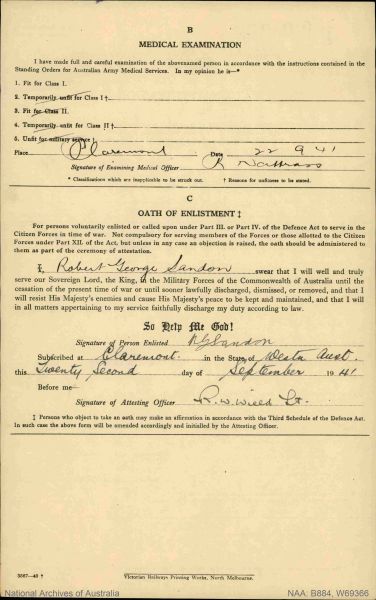 B
MEDICAL EXAMINATION
I have made full and careful examination of the abovenamed person in accordance with the instructions contained in the
Standing Orders for Australian Army Medical Services. In my opinion he is—*
1. Fit for Class I.
2. Temporarily unfit for Class I †.
3. Fit for Class II.
4. Temporarily unfit for Class II †.
5. Unfit for military service †.
Place Claremont Date 22 9 41
Signature of Examining Medical Officer K
* Classifications which are inapplicable to be struck out. † Reasons for unfitness to be stated.
C
OATH OF ENLISTMENT ‡
For persons voluntarily enlisted or called upon under Part III. or Part IV. of the Defence Act to serve in the
Citizen Forces in time of war. Not compulsory for serving members of the Forces or those allotted to the Citizen
Forces under Part XII. of the Act, but unless in any case an objection is raised, the oath should be administered to
them as part of the ceremony of attestation.
I, Robert George Sandon swear that I will well and truly
serve our Sovereign Lord, the King, in the Military Forces of the Commonwealth of Australia until
the cessation of the present time of war or until sooner lawfully discharged, dismissed, or removed, and that I
will resist His Majesty's enemies and cause His Majesty's peace to be kept and maintained, and that I will
in all matters appertaining to my service faithfully discharge my duty according to law.
So Help Me God!
Signature of Person Enlisted RGSandon
Subscribed at Claremont in the State of Westn Aust.
this Twenty Second day of September 1941
Before me—
Signature of Attesting Officer R. W. Lt.
‡ Persons who object to take an oath may make an affirmation in accordance with the Third Schedule of the Defence Act.
In such case the above form will be amended accordingly and initialled by the Attesting Officer.
3867—40 †
Victorian Railways Printing Works, North Melbourne.
National Archives of Australia
NAA: B884, W69366